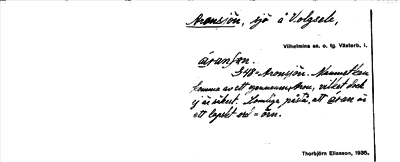 Aronsjön, sjö å Volgsele,
Vilhelmina sn. o. tg. Västerb. l.
åransən.
S48 Aronsjön. Namnet kan
komma av ett gennamn Aron, vilket dock
ej är säkert. Somliga påstå, att åran är
ett lapskt ord = örn.
Thorbjörn Eliasson, 1935.